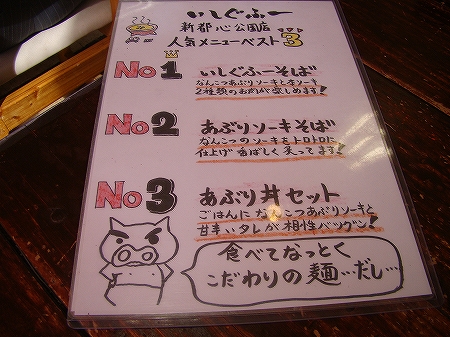 いしぐふー
新都心公園店
人気メニューベスト3
No1 いしぐふーそば
なんこつあぶりソーキと本ソーキ
2種類のお肉が楽しめます!
No2 あぶりソーキそば
なんこつのソーキをトロトロに
仕上げ香ばしく炙ってます!
No3 あぶり丼セット
ごはんになんこつあぶりソーキと
甘辛いタレが相性バツグン!
食べてなっとく
こだわりの麺…だし…